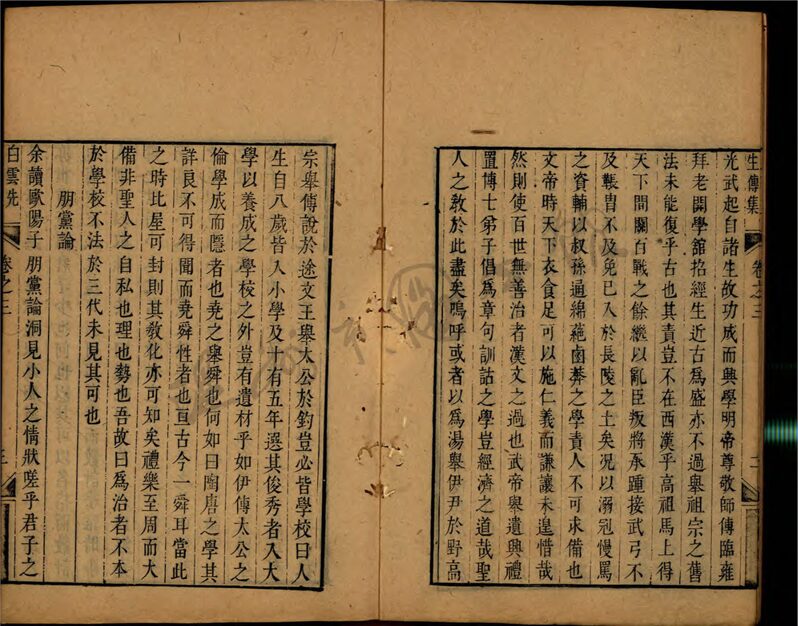 生傳集
卷之三
二
光武起自諸生故功成而興學明帝尊敬師傅臨雍
拜老開學舘招經生近古爲盛亦不過舉祖宗之舊
法未能復乎古也其責豈不在西漢乎高祖馬上得
天下間關百戰之餘繼以亂臣叛將承踵接武弓不
及韔胄不及免已入於長陵之土矣况以溺冠慢罵
之資輔以叔孫通綿蕝鹵莽之學責人不可求備也
文帝時天下衣食足可以施仁義而謙讓未遑惜哉
然則使百世無善治者漢文之過也武帝舉遺興禮
置博士弟子倡爲章句訓詁之學豈經濟之道哉聖
人之教於此盡矣嗚呼或者以爲湯舉伊尹於野高
宗舉傅說於途文王舉太公於釣豈必皆學校曰人
生自八歲皆入小學及十有五年選其俊秀者入大
學以養成之學校之外豈有遺材乎如伊傅太公之
倫學成而隱者也堯之舉舜也何如曰陶唐之學其
詳良不可得聞而堯舜性者也亘古今一舜耳當此
之時比屋可封則其教化亦可知矣禮樂至周而大
備非聖人之自私也理也勢也吾故曰爲治者不本
於學校不法於三代未見其可也
朋黨論
余讀歐陽子朋黨論洞見小人之情狀嗟乎君子之
白雲先
卷之三
三